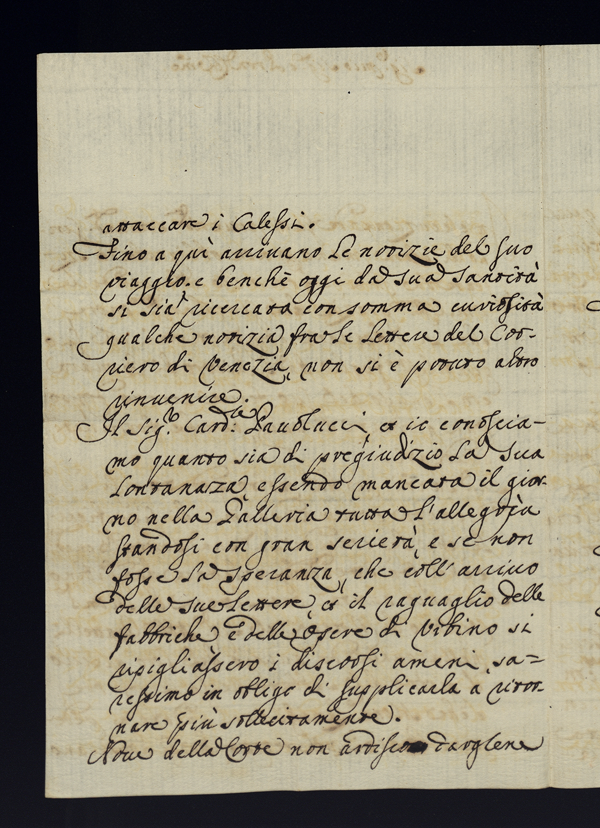 attaccare i Calessi.
Fino a quì arrivano le notizie del suo
viaggio, e benchè oggi da sua Santità
si sia ricercata con somma curiosità
qualche notizia fra le lettere del Cor-
riero di Venezia, non si è potuto altro
rinvenire.
Il Sig.r Card.le Pauolucci, et io conoscia-
mo quanto sia di pregiudizio la sua
lontananza, essendo mancata il gior-
no nella Galleria tutta l'allegria
standosi con gran serietà, e se non
fosse la speranza, che coll'arrivo
delle sue lettere, et il raguaglio delle
fabbriche e delle Opere di Urbino si
ripigliassero i discorsi ameni, sa-
ressimo in obligo di supplicarla a ritor-
nare più sollecitamente.
Nove della Corte non ardisco darglene